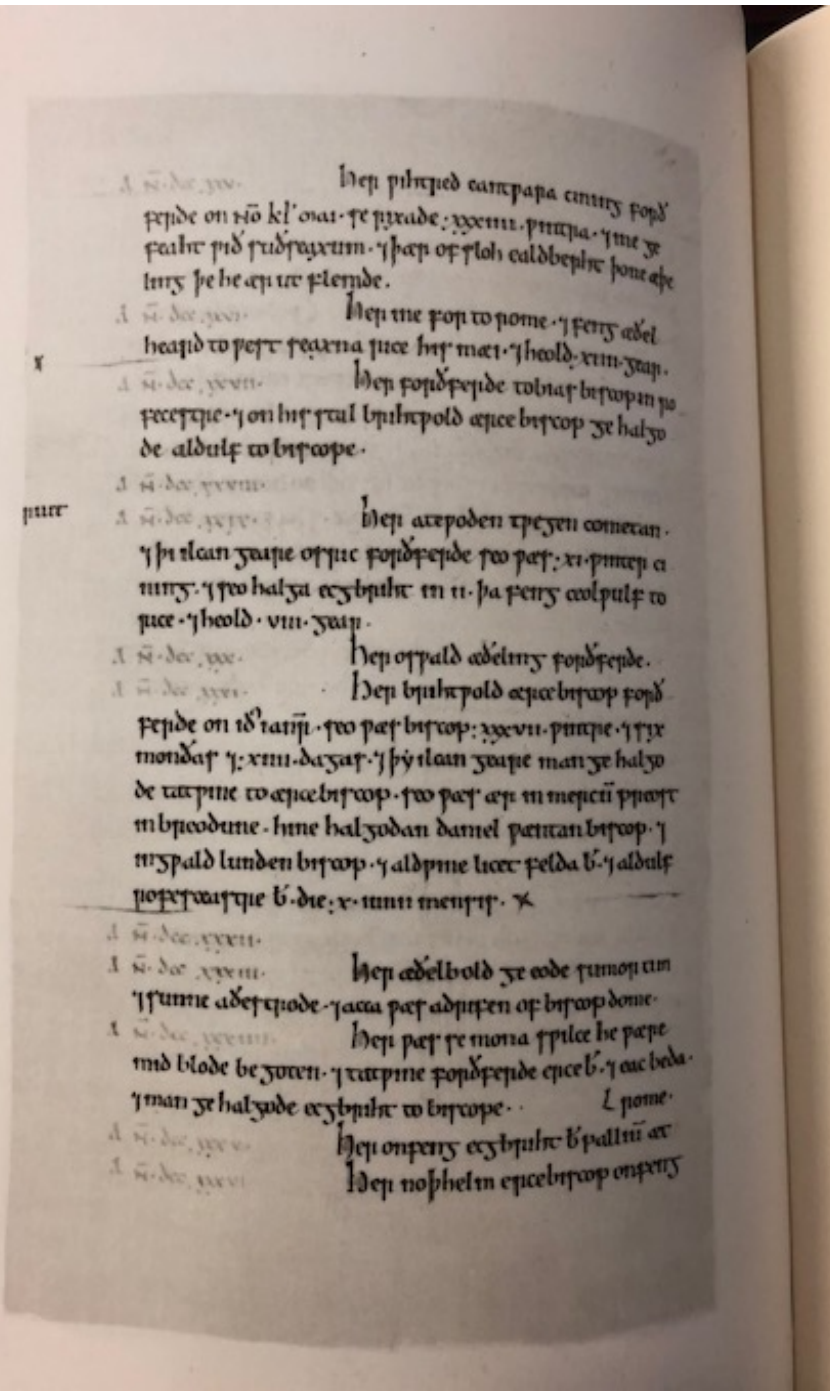 Her ƿihtred cantƿara cining forð
ferde on ix kl̄ mai. se rixade. xxxiiii. ƿintra. ⁊ ine ge
feaht ƿið suðseaxum. ⁊ þær ofsloh ealdberht þone æþe
ling þe he ær ut flemde.
Her ine for to rome. ⁊ feng æðel
heard to ƿest seaxna rice his mæi. ⁊ heold. xiiii. gear.
Her forðferde tobias biscop in ro
feceſtre. ⁊ on his stal brihtƿold ærce biscop ge halgo
de aldulf to biscope.
Her ateoƿoden tƿegen cometan.
⁊ þi ilcan geare osric forðferde seo ƿæs. xi. ƿinter ci
ning. ⁊ seo halga ecgbriht in ii. þa feng ceolƿulf to
rice. ⁊ heold. viii. gear.
Her osƿald æðeling forðferde.
Her brihtƿold ærce biscop forð
ferde on id̄ ianr̄. seo ƿæs biscop. xxxvii. ƿintre. ⁊ six
monðas ⁊. xiiii. dagas. ⁊ þy ilcan geare man ge halgo
de tatƿine to ærce biscop. seo ƿæs ær in merciū preost
in breodune. hine halgodan daniel ƿentan biscop. ⁊
ingƿald lunden biscop. ⁊ aldƿine licet felda b̄. ⁊ aldulf
rofesceastre b̄. die. x. iunii mensis.
Her æðelbold ge eode sumortun
⁊ sunne aðestrode. ⁊ acca ƿæs adrifen of biscop dome.
Her ƿæs se mona sƿilce he ƿære
mid blode be goten. ⁊ tatƿine forðferde erce b̄. ⁊ eac beda.
⁊ man ge halgode ecgbriht to biscope. rome.
Her onfeng ecgbriht b̄ palliū æt
Her noþhelm erce biscop onfeng